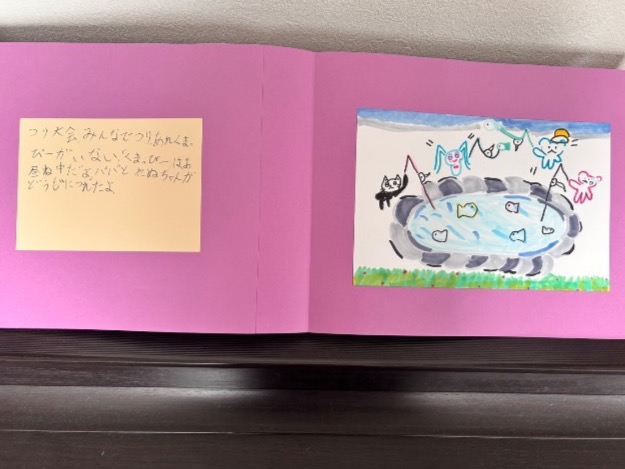 つり大会、みんなでつり。あれくま、
ぴーがいないぞくま。ぴーはお
昼ね中だよパパとたぬちゃんが
どうじにつれたよ